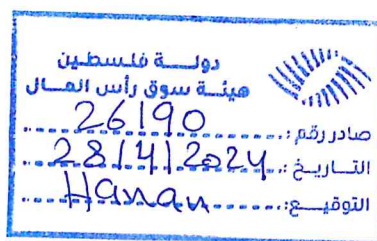 دولة فلسطين
هيئة سوق رأس المال
صادر رقم: 26190
التاريخ: 28/4/2024
التوقيع: Hanan